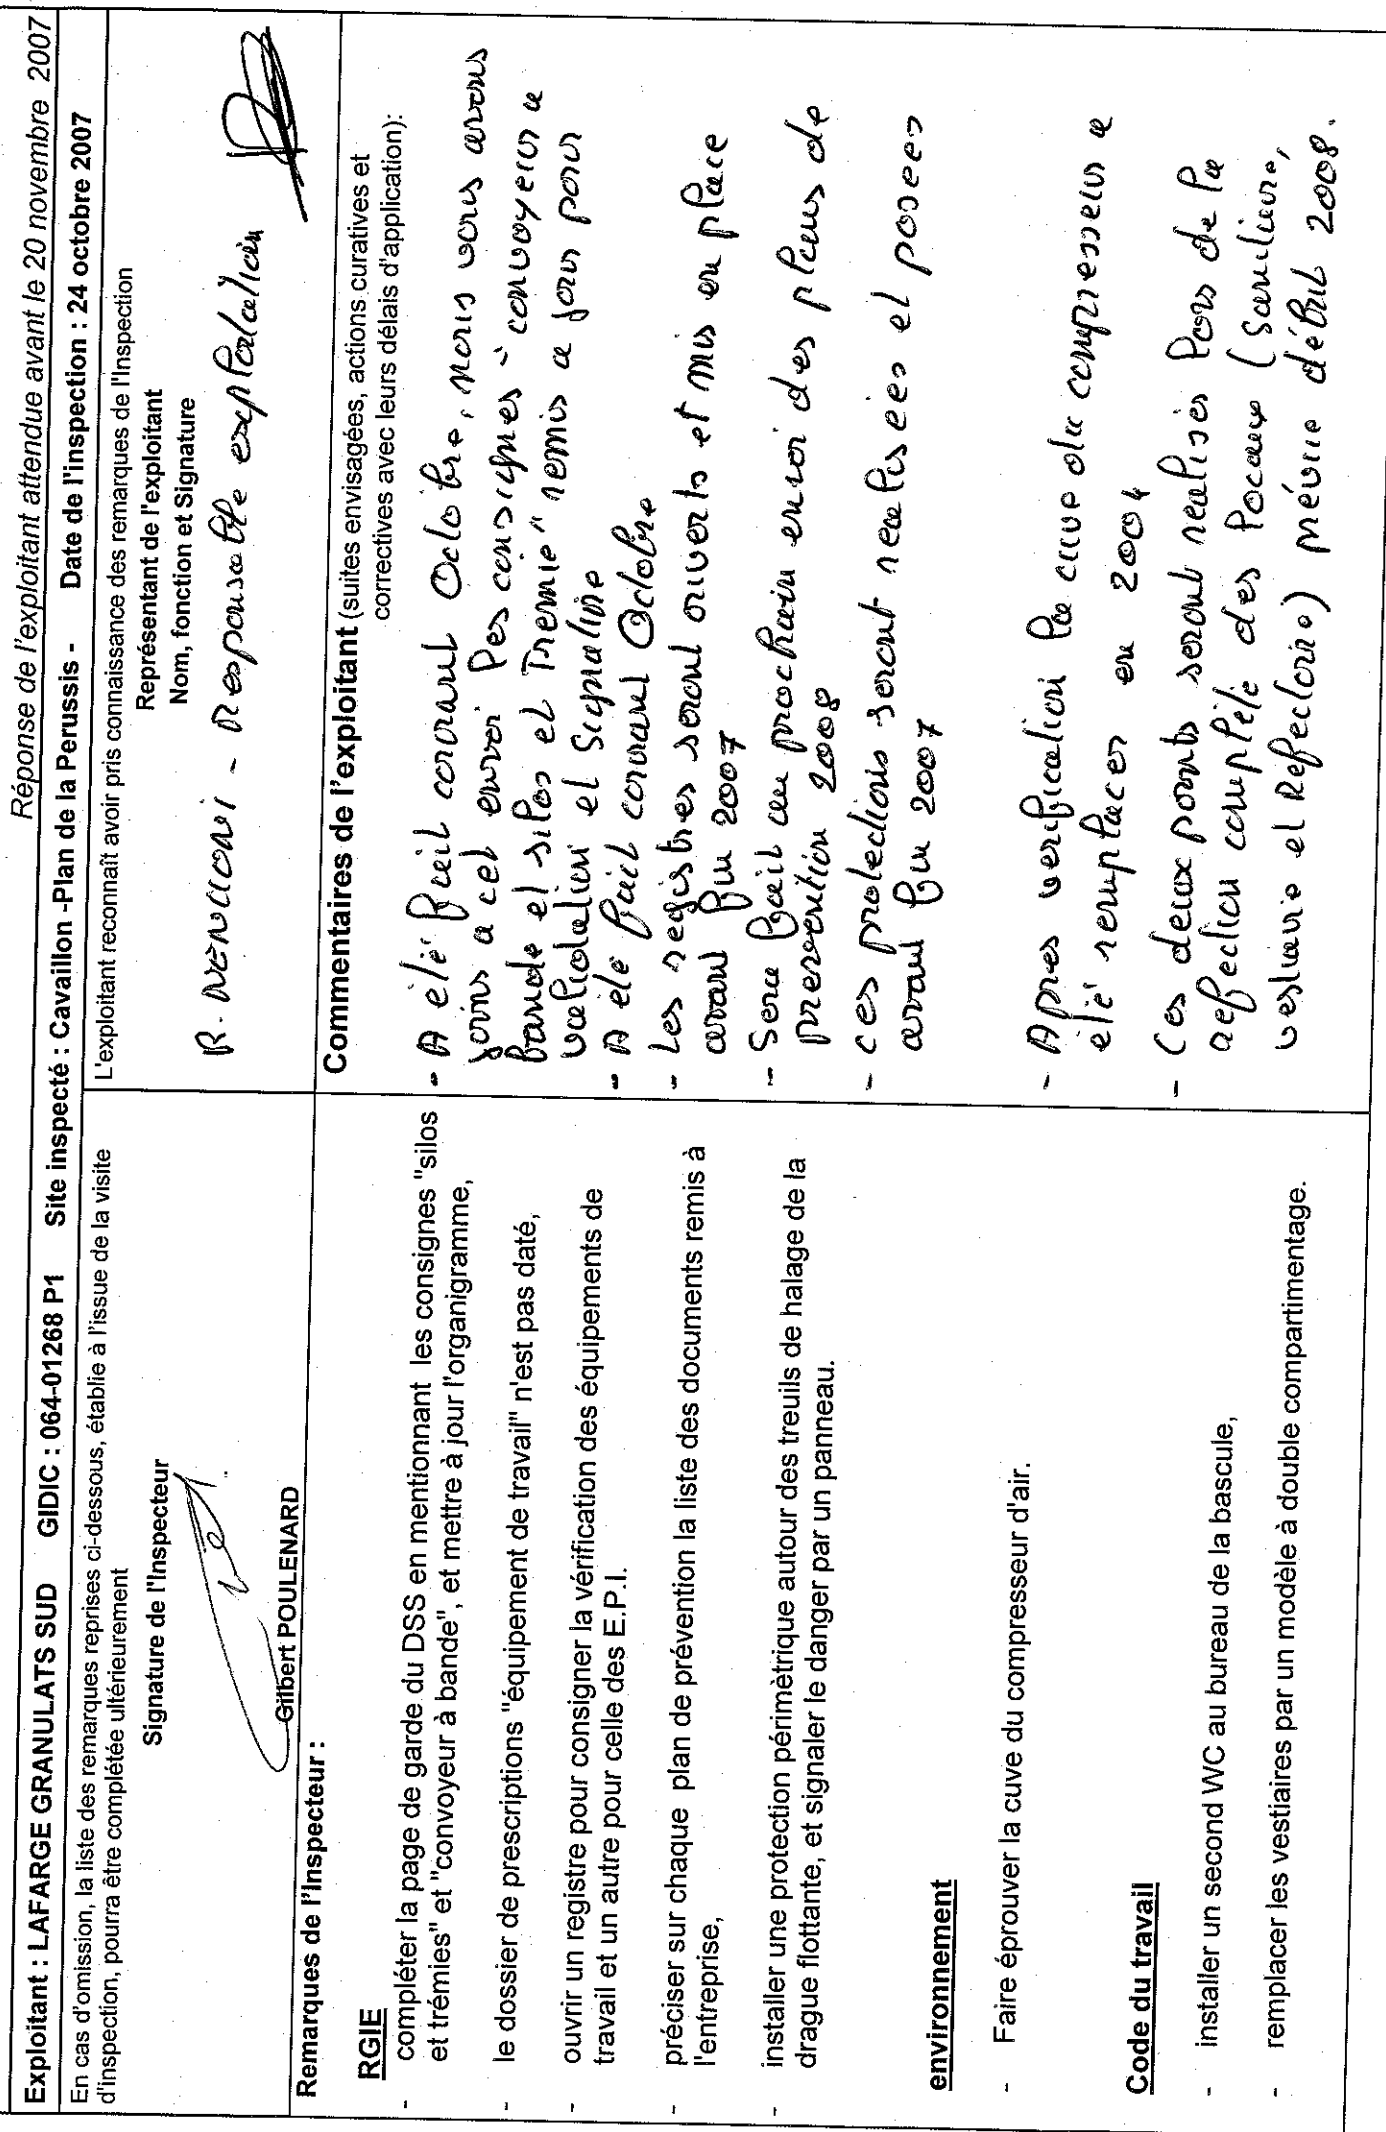 Réponse de l'exploitant attendue avant le 20 novembre 2007
Exploitant : LAFARGE GRANULATS SUD GIDIC : 064-01268 P1 Site inspecté : Cavaillon -Plan de la Perussis - Date de l'inspection : 24 octobre 2007
En cas d'omission, la liste des remarques reprises ci-dessous, établie à l'issue de la visite
d'inspection, pourra être complétée ultérieurement
Signature de l'Inspecteur
Gilbert POULENARD
L'exploitant reconnaît avoir pris connaissance des remarques de l'Inspection
Représentant de l'exploitant
Nom, fonction et Signature
R. - Responsable exploitation
Remarques de l'Inspecteur :
RGIE
- compléter la page de garde du DSS en mentionnant les consignes "silos
et trémies" et "convoyeur à bande", et mettre à jour l'organigramme,
- le dossier de prescriptions "équipement de travail" n'est pas daté,
- ouvrir un registre pour consigner la vérification des équipements de
travail et un autre pour celle des E.P.I.
- préciser sur chaque plan de prévention la liste des documents remis à
l'entreprise,
- installer une protection périmètrique autour des treuils de halage de la
drague flottante, et signaler le danger par un panneau.
environnement
- Faire éprouver la cuve du compresseur d'air.
Code du travail
- installer un second WC au bureau de la bascule,
- remplacer les vestiaires par un modèle à double compartimentage.
Commentaires de l'exploitant (suites envisagées, actions curatives et
correctives avec leurs délais d'application):
- A été fait courant Octobre, nous vous avons
joins a cet envoi les consignes "convoyeur a
bande et silos et Tremie" remis a jour pour
validation et signature
- A été fait courant Octobre
- Les registres seront ouverts et mis en place
avant fin 2007
- Sera fait au prochain envoi des plans de
prevention 2008
- ces protections seront realisées et posees
avant fin 2007
- Apres verification la cuve du compresseur a
été remplacer en 2004
- Ces deux points seront realisés lors de la
refection complète des locaux (Sanitaire,
vestiaire et Refectoire) prévue début 2008.